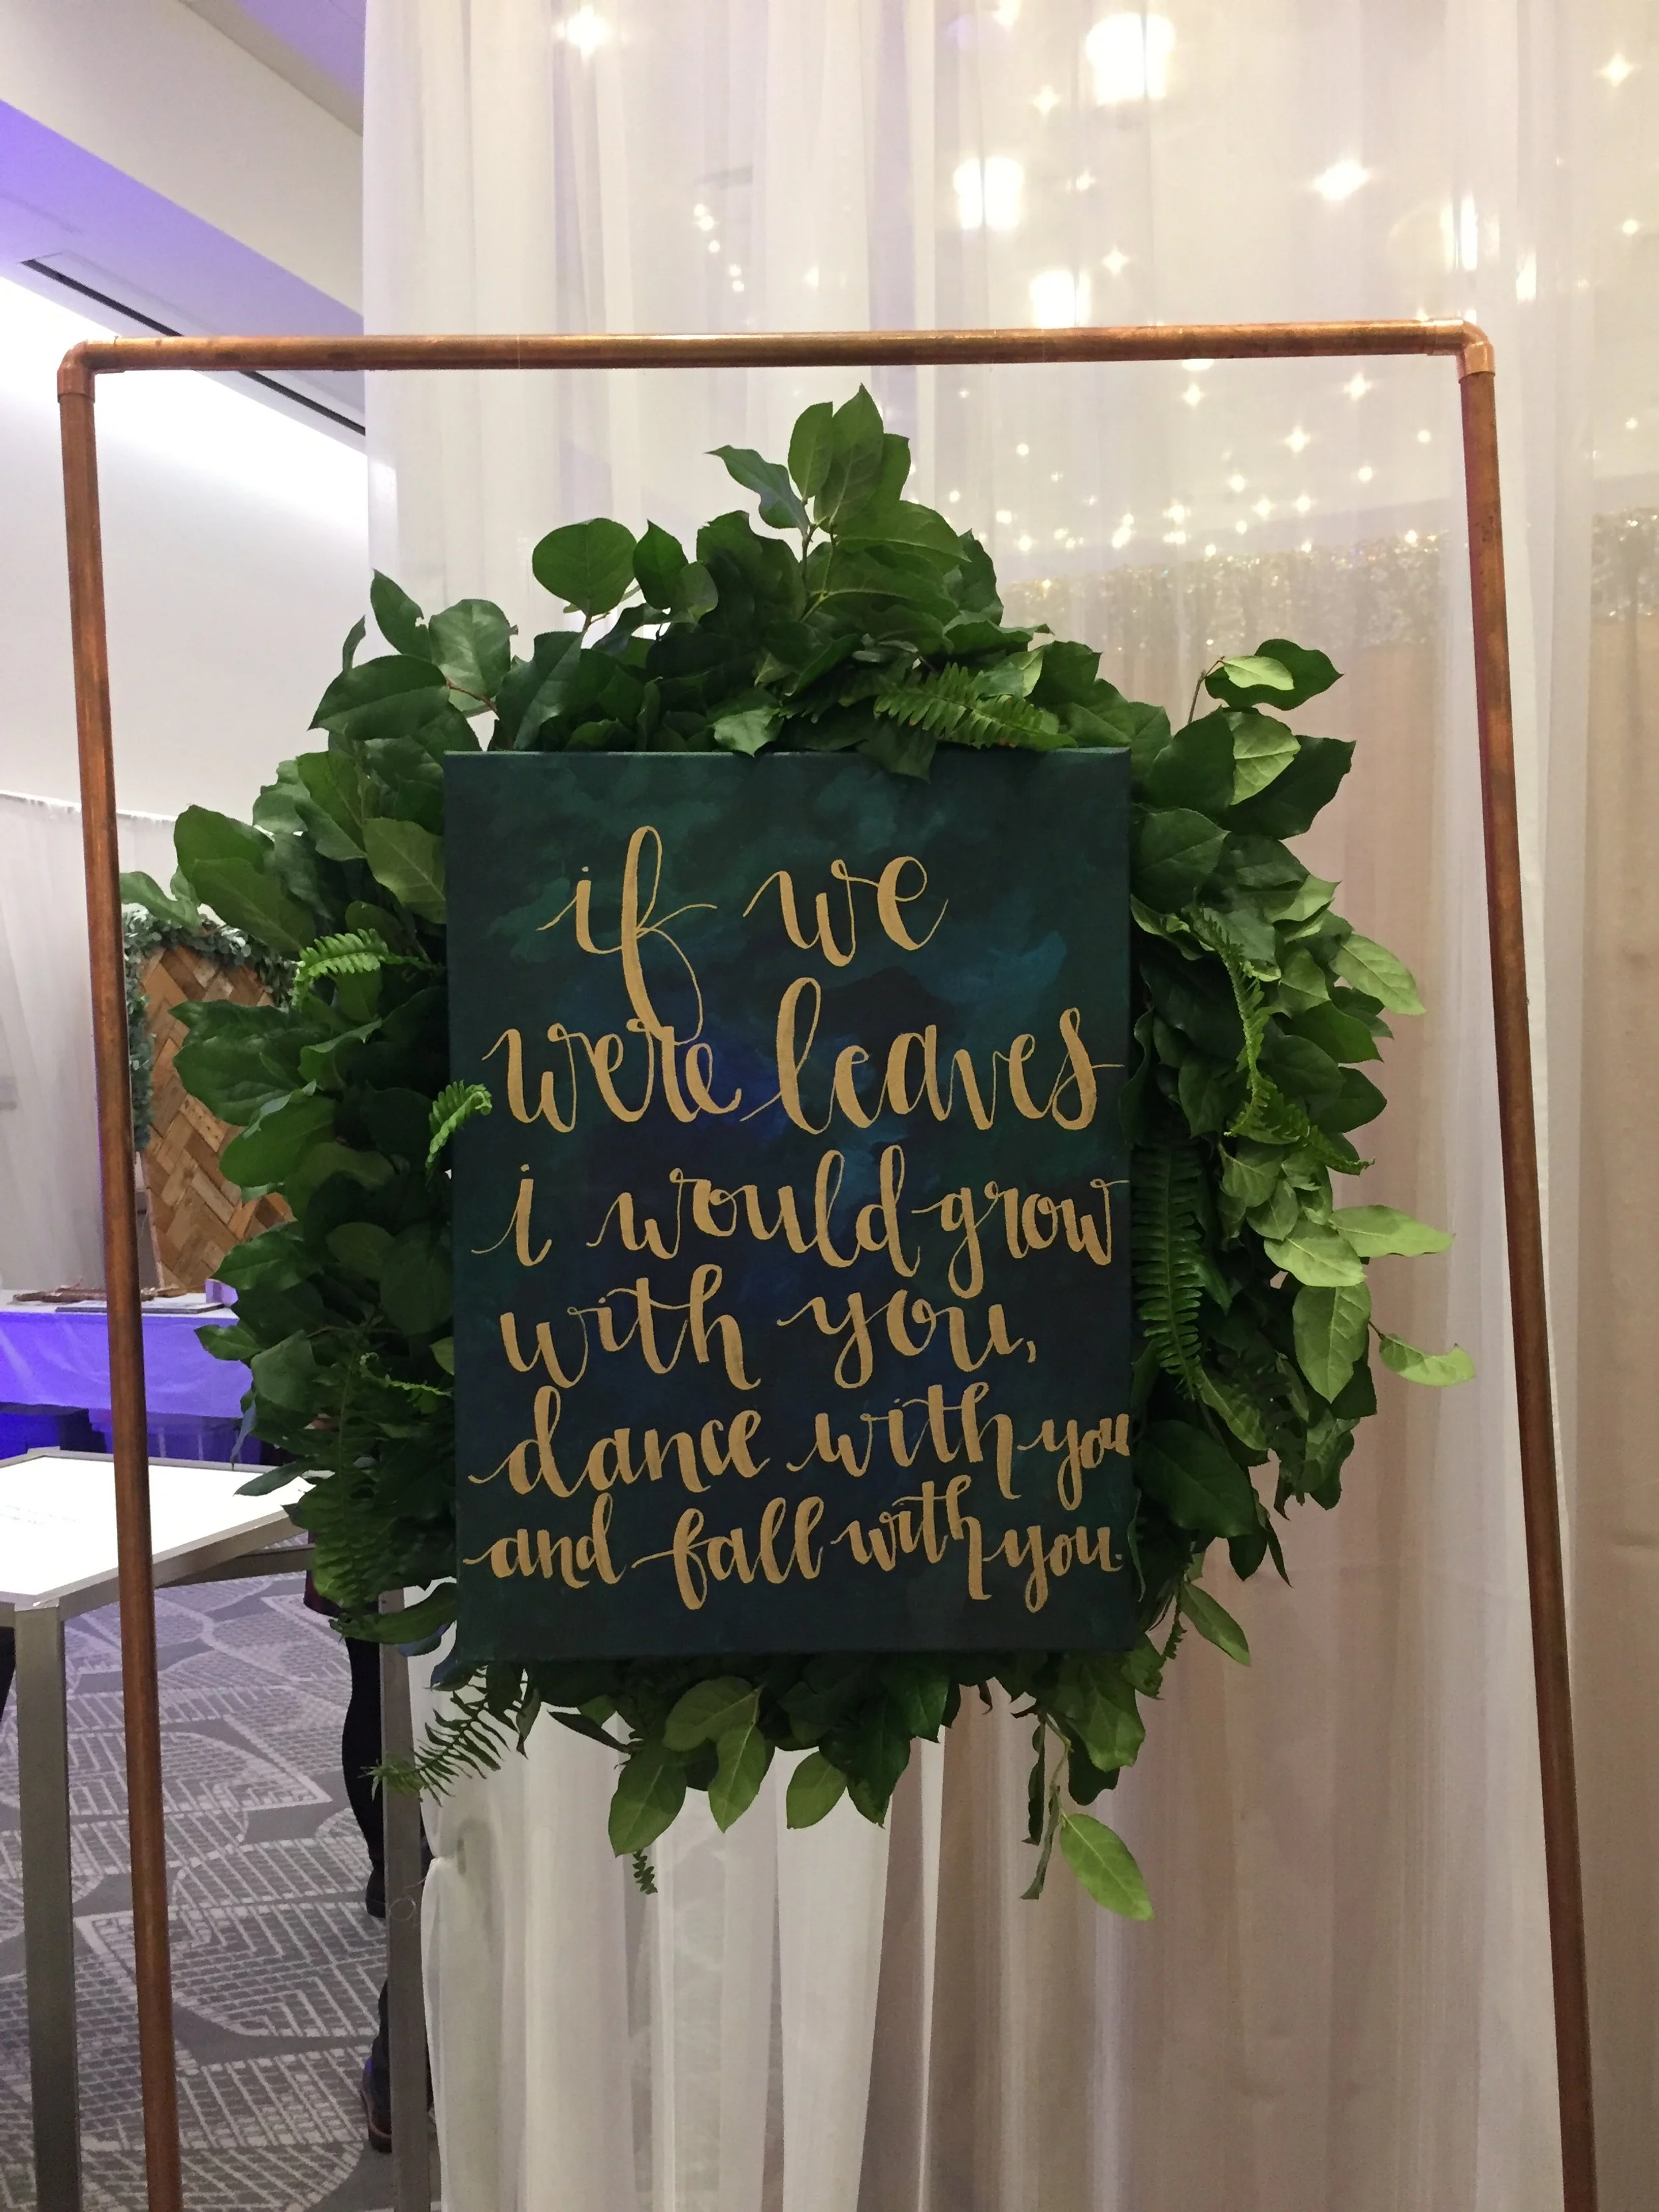 if we
were leaves
i would grow
with you,
dance with you
and fall with you.